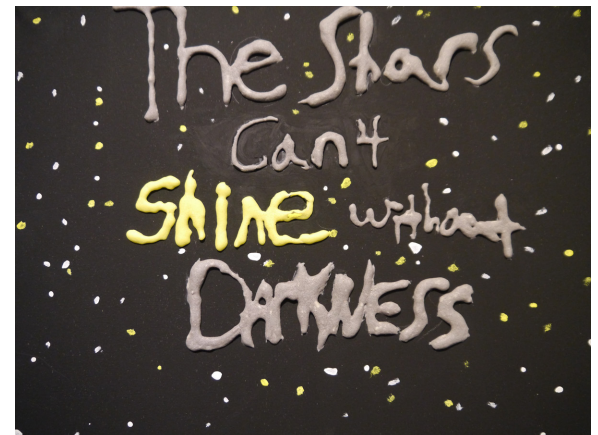 The Stars
Can4
Shine without
DARKNESS